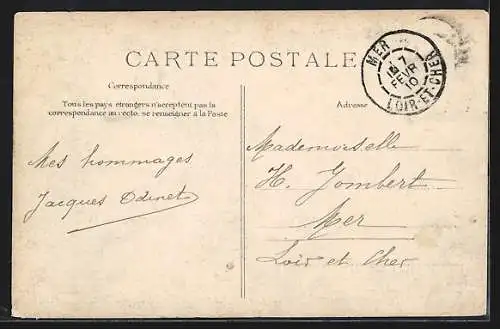 CARTE POSTALE
Correspondance
Tous les pays étrangers n'acceptent pas la
correspondance au recto, se renseigner à la Poste
Mes hommages
Jacques Odinet
Adresse
Mademoiselle
H. Jombert
Mer
Loir et Cher
MER
7
FEVR
10
LOIR-ET-CHER